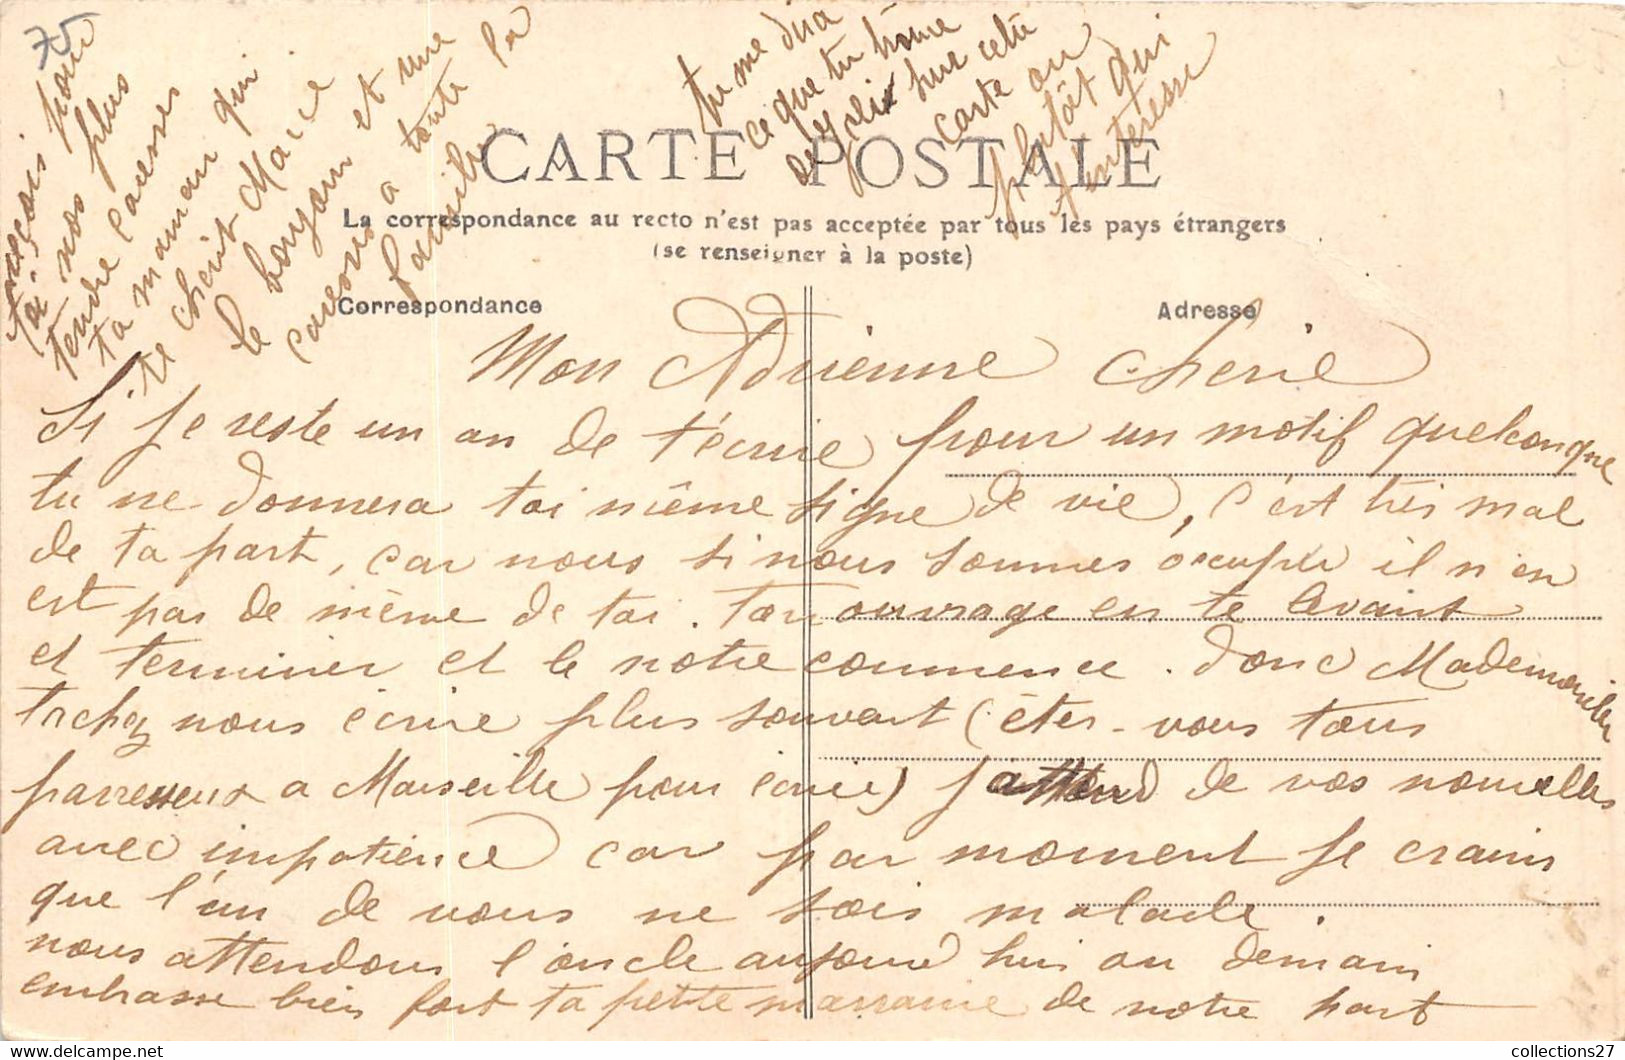 CARTE POSTALE
La correspondance au recto n'est pas acceptée par tous les pays étrangers
(se renseigner à la poste)
Correspondance
Adresse
Mon Adrienne cherie
Si je reste un an de t'écrire pour un motif quelconque
tu ne donnera toi même signe de vie, c'est très mal
de ta part, car nous si nous sommes occupés il n'en
est pas de même de toi. Ton ouvrage en te levant
et terminer et le notre commence. Donc Mademoiselle
tachez nous écrire plus souvent (êtes-vous tous
parresseux a Marseille pour écrire) J'attend de vos nouvelles
avec impatience car par moment je crains
que l'un de vous ne sois malade.
nous attendons l'oncle aujourd hui ou demain
embrasse bien fort ta petite marraine de notre part
reçois pour
toi nos plus
tendre caresses
ta maman qui
te cherit Marie
le bonjour et une
caresse a toute la
famille
tu me dira
ce que tu
de sur cette
carte ou
plutôt qui
interesse
collections27